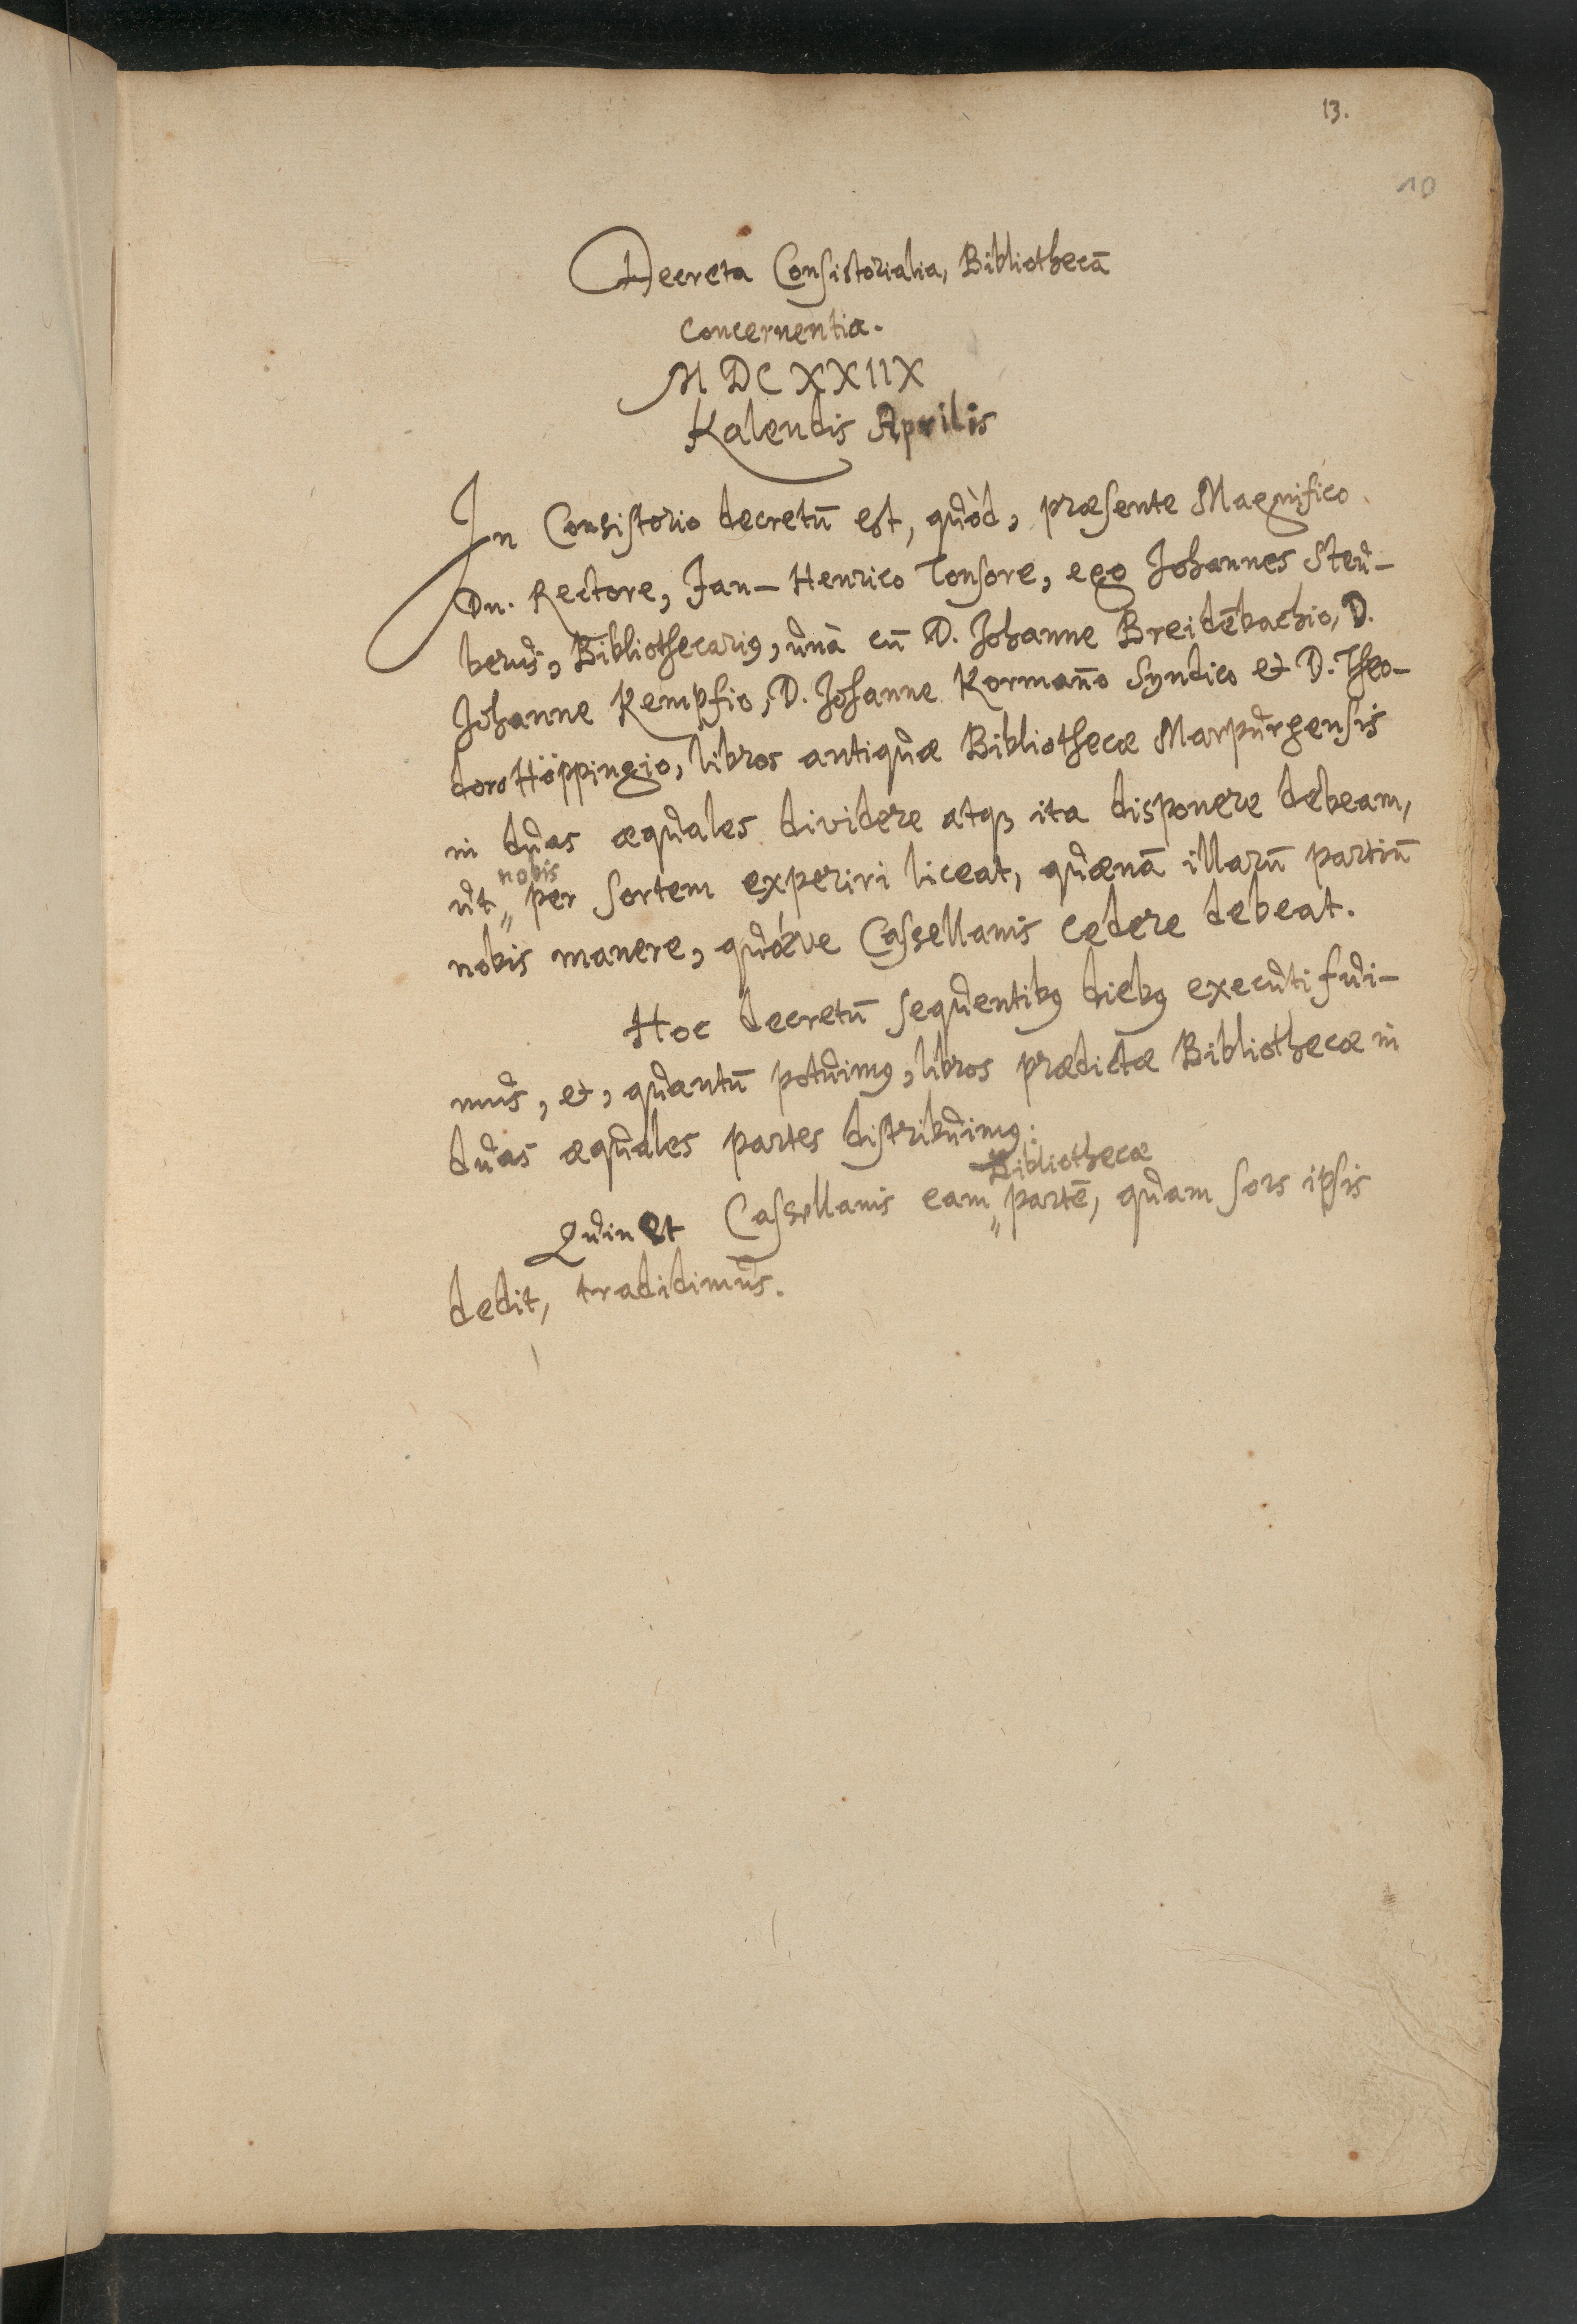 13.
10
Decreta Consistorialia, Bibliothecā
concernentia.
MDCXXIIX
Kalendis Aprilis
In Consistorio decretū est, quòd, præsente Magnifico
Dn. Rectore, Jan-Henrico Tonsore, ego Johannes Steu-
berus, Bibliothecariꝰ, unà cū D. Johanne Breidēbachio, D.
Johanne Kempfio, D. Johanne Kormaño Syndico et D. Theo-
doro Höppingio, libros antiquæ Bibliothecæ Marpurgensis
in duas æquales dividere atqꝫ ita disponere debeam,
nobis
ut„ per sortem experiri liceat, quænā illarū partiū
nobis manere, quæve Cassellanis cedere debeat.
Hoc decretū sequentibꝰ diebꝰ executi fui-
mus, et, quantū potuimꝰ, libros prædictæ Bibliothecæ in
duas æquales partes distribuimꝰ:
Bibliothecæ
Quin et Cassellanis eam„ partē, quam sors ipsis
dedit, tradidimus.